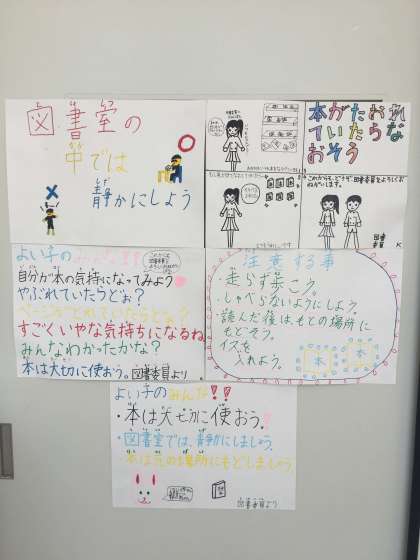 図書室の
中では
静かにしよう
本がたおれ
ていたらな
おそう
これからも、どうぞ図書委員をよろしくお
ねがいします。
図書
委員
よい子のみんな!!
自分が本の気持になってみよう
やぶれていたらどぉ?
ページがとれていたらどぉ?
すごくいやな気持ちになるね
みんなわかったかな?
本は大切に使おう。図書委員より
注意する事
・走らず歩こう。
・しゃべらないようにしよう。
・読んだ後は、もとの場所に
もどそう。
・イスを
入れよう。
本
本
よい子のみんな!!
・本は大切に使おう。
・図書室では、静かにしましょう。
・本は元の場所にもどしましょう
図書委員より